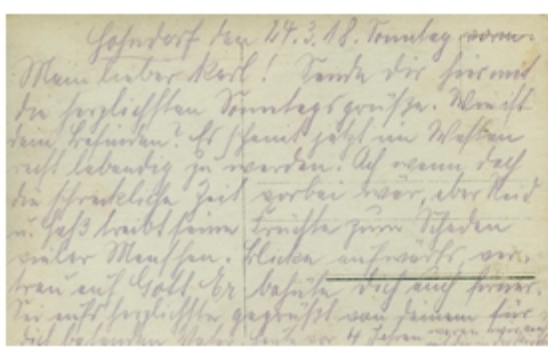 Hohndorf den 24.3.18. Sonntag vorm.
Mein lieber Karl! Sende dir hiermit
die herzlichsten Sonntagsgrüße. Wie ist
dein Befinden? Es scheint jetzt im Westen
recht lebendig zu werden. Ach wenn doch
die schreckliche Zeit vorbei wär, aber Neid
u. Haß treibt seine Früchte zum Schaden
vieler Menschen. Blicke aufwärts, ver-
trau auf Gott. Er behüte dich auch ferner.
Sei aufs herzlichste gegrüßt von deinem für
dich betenden Vater. Heute vor 4 Jahren waren